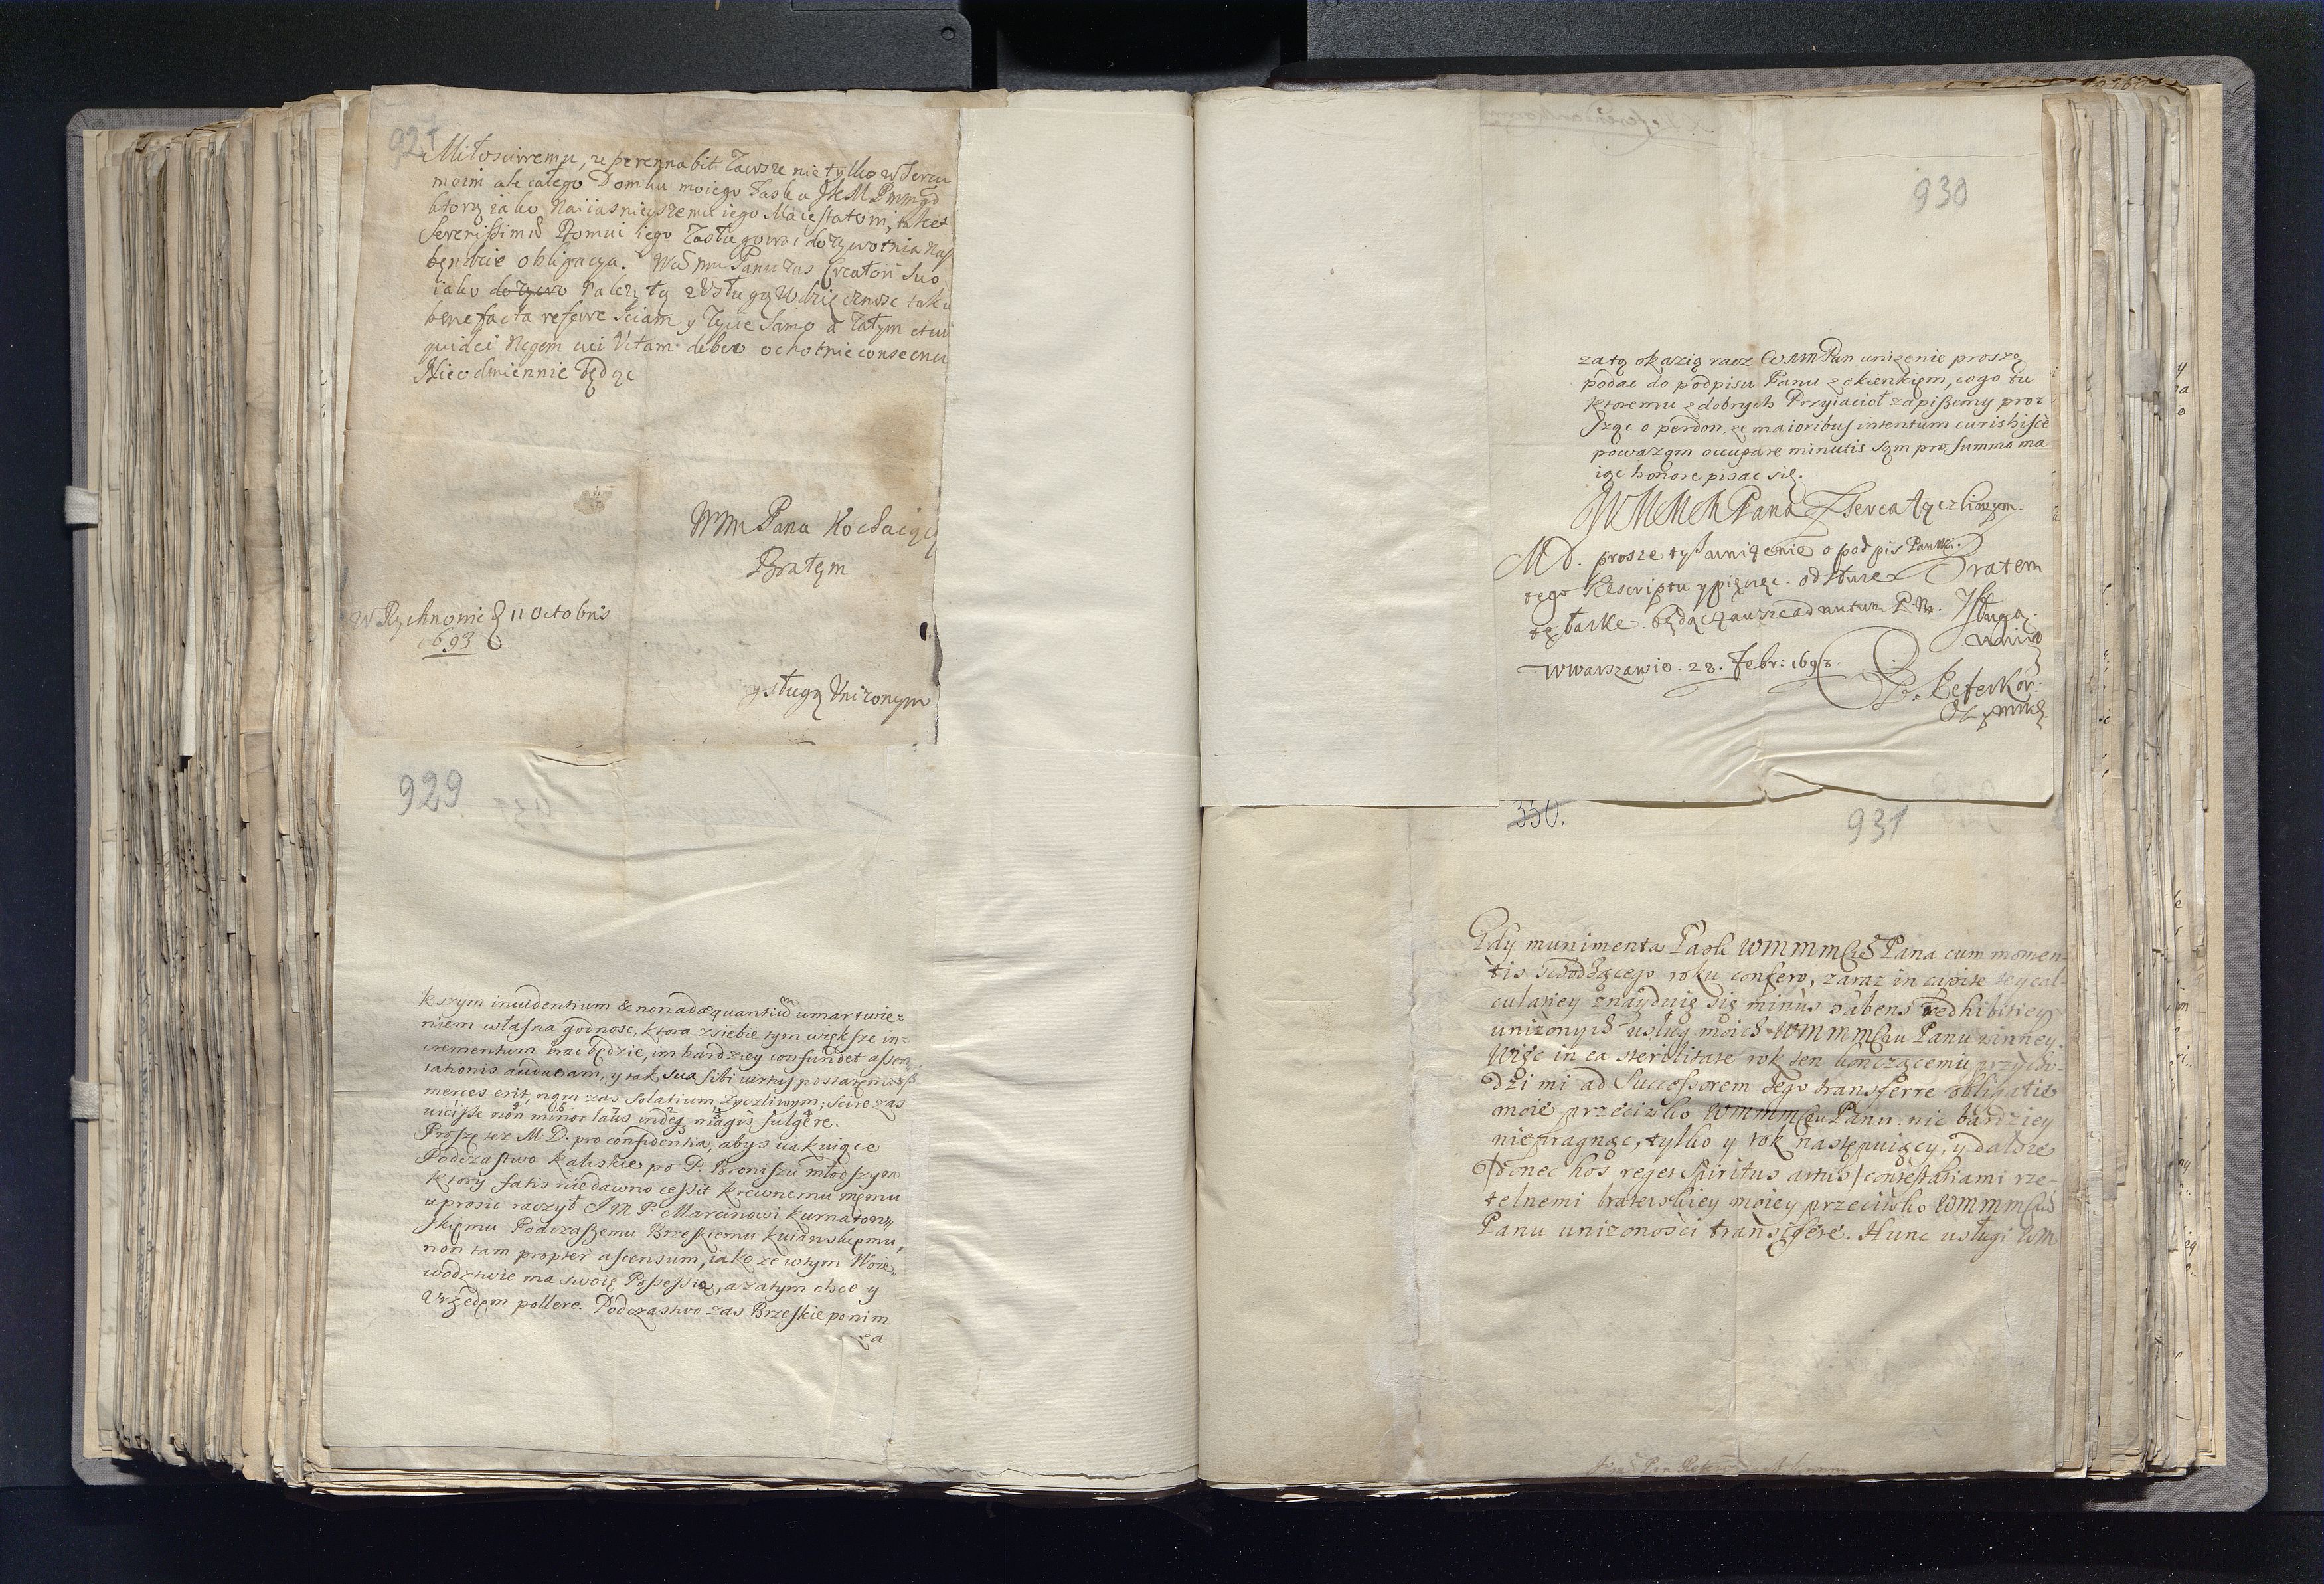 927
Miłosciwemu, u perennabit zawsze nie tylko w Sercu
moim ale całego Domku moiego łaska JKM Pmmgo
ktorą iako Naiiasnieyszemu iego Maiestatowi, także
Serenissimæ Domui iego zasługowac dożywotnia nasz
będzie obligacya. Wm mu Panu zas Creatori suo
iako należytą zasługą wdzięcznosc
benefacta referre sciam y życie samo a zatym
Regem cui Vitam debeo ochotnie
Nieodmiennie będąc
Wm Pana Kochaiący
Bratem
W Rychnowie 11 Octobris
1693
y sługą Uniżonym
929
kszym inuidentium & non adæquantium umartwie=
niem własna godnosc, ktora z siebie tym większe in=
crementum brac będzie, im bardziey confundet assen
tationis audaciam, y tak sua sibi uirtus
merces erit, nąm zas solatium życzliwym; scire zas
uicisse non minor laus indeq magis fulgere.
Proszę też M D. pro confidentia, abys
Podczastwo kaliskie po P. Broniszu młodszym
ktory satis niedawno cessit krewnemu memu
uprosic raczył J M P. Marcinowi kurnatow=
skiemu Podczaszemu Brzeskiemu kuiawskiemu,
non tam propter ascensum, iako że w tym Woie=
wodztwie ma swoię Possessią, a zatym chce y
Vrzędem pollere. Podczastwo zas Brzeskie po nim
za
930
za tą okazią racz WMMPan uniżenie proszę
podac do podpisu Panu z okienkiem, cogo tu
ktoremu z dobrych Przyiacioł zapiszemy pro=
sząc o perdon, że maioribus intentum curis hisce
poważam occupare minutis sąm pro summo ma
iąc honore pisac się.
WMMM Pana z serca życzliwym
MD. prosze tysz uniżenie o podpis Panski
tego Rescriptu y pieczęc. odsłuże
Bratem
tę łaske. będąc zawsze ad nutum P. M. Sługą
W Warszawie. 28. Febr: 1698.
P. Referkor:
350.
931
Gdy munimenta łask WMMMCie Pana cum momen-
tis schodzącego roku confero, zaraz in capite tey cal-
culatiey znayduię się minus habens redhibitiey
uniżonych usług moich WMMMCiu Panu winney.
Więc in ea sterilitate rok ten kończącemu przycho-
dzi mi ad Successorem tego transferre obligatie
moie przeciwko WMMMCiu Panu. nic bardziey
niepragnąc, tylko y rok następuiący, y dalsze
donec hos reget Spiritus artus contestatiami rze-
telnemi braterskiey moiey przeciwko WMMMCiu
Panu unizonosci transigere. Hunc usługi WM